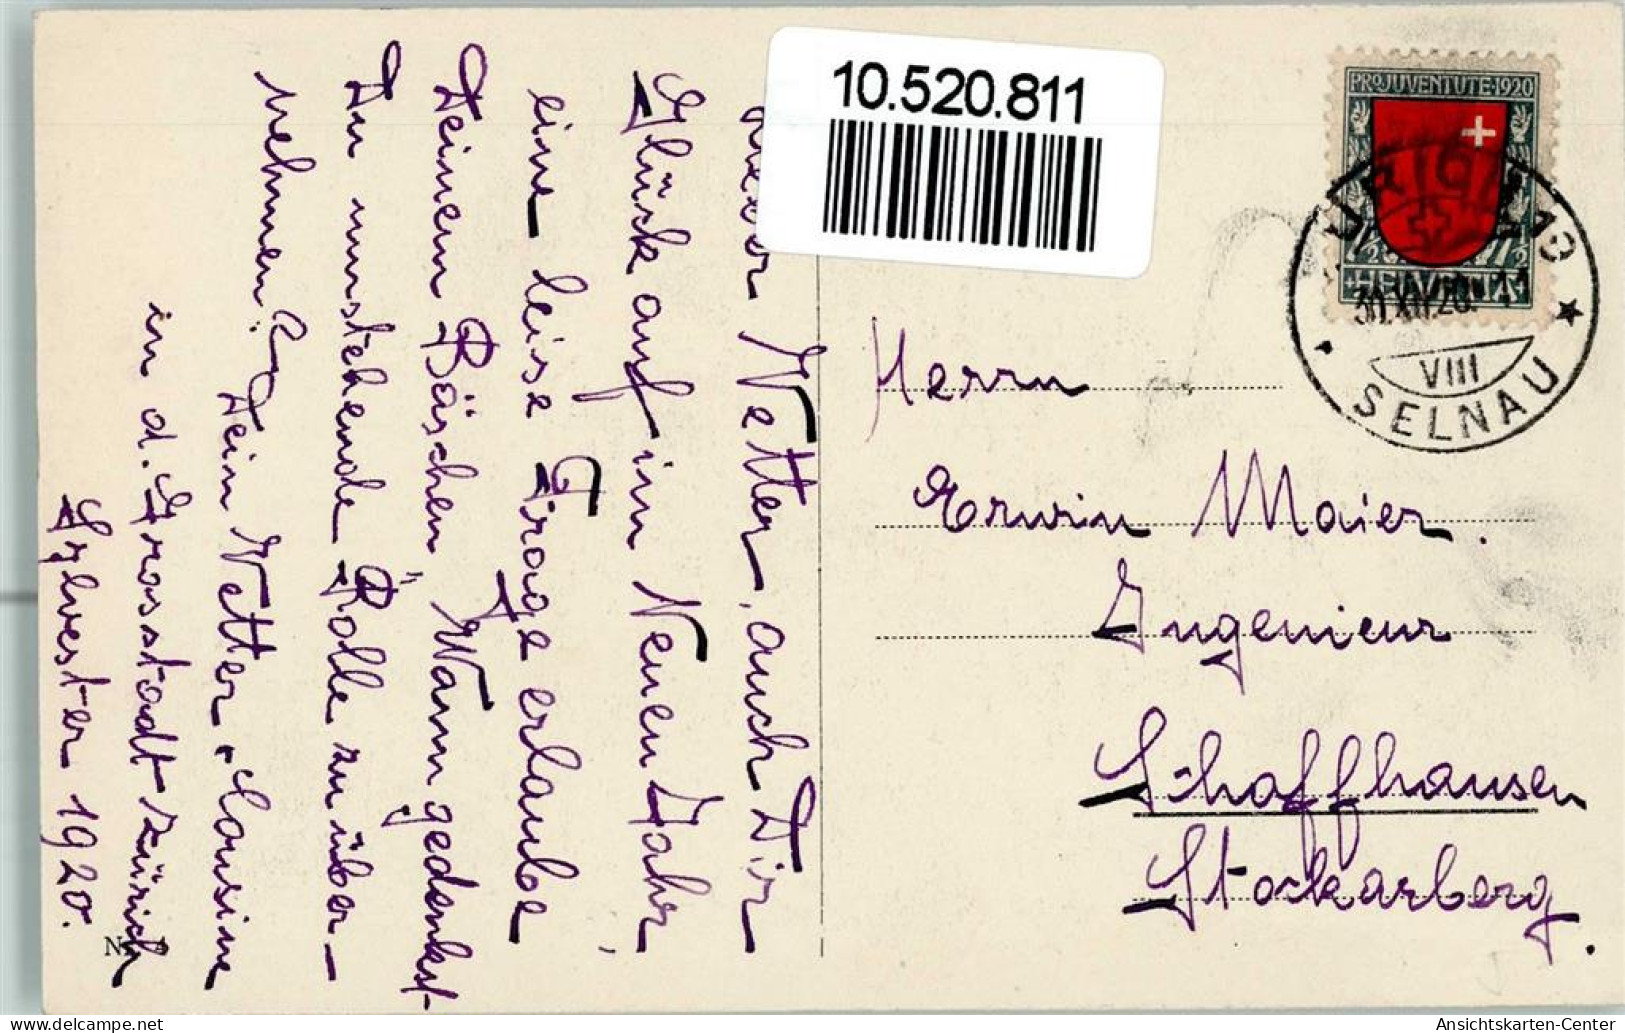 10.520.811
PRO JUVENTUTE·1920
HELVETIA
ZÜRICH 19
31.XII.20. 11
VIII
SELNAU
Lieber Vetter, auch Dir
Glück auf im Neuen Jahr,
eine leise Frage erlaube
Deinem Bäschen, Wann gedenkst
Du umstehende Rolle zu über-
nehmen?
Dein Vetter-Cousine
in d. Grossstadt Zürich
Sylvester 1920.
Herrn
Erwin Maier.
Ingenieur
Schaffhausen
Stockarberg.
Ansichtskarten-Center